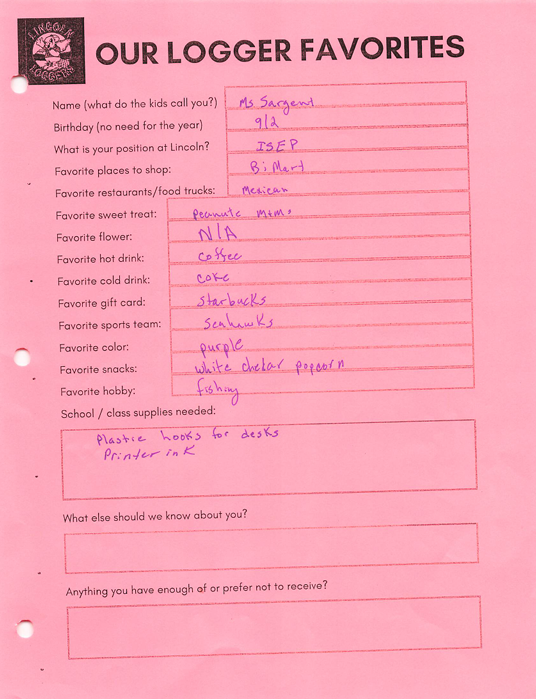 LINCOLN
LOGGERS
OUR LOGGER FAVORITES
Name (what do the kids call you?) Ms Sargent
Birthday (no need for the year) 9/2
What is your position at Lincoln? ISEP
Favorite places to shop: Bi Mart
Favorite restaurants/food trucks: Mexican
Favorite sweet treat: Peanute M+Ms
Favorite flower: N/A
Favorite hot drink: Coffee
Favorite cold drink: Coke
Favorite gift card: Starbucks
Favorite sports team: Seahawks
Favorite color: purple
Favorite snacks: white chekar popcorn
Favorite hobby: fishing
School / class supplies needed:
Plastic hooks for desks
Printer ink
What else should we know about you?
Anything you have enough of or prefer not to receive?